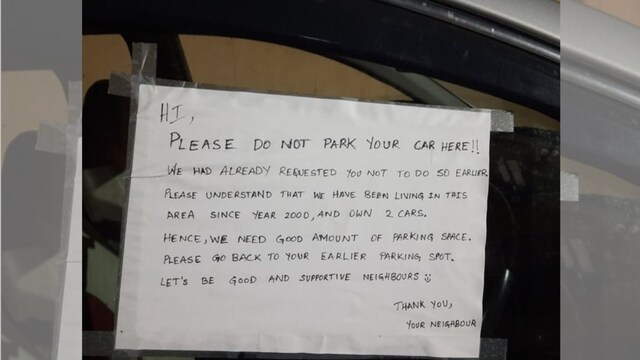 HI,
PLEASE DO NOT PARK YOUR CAR HERE!!
WE HAD ALREADY REQUESTED YOU NOT TO DO SO EARLIER
PLEASE UNDERSTAND THAT WE HAVE BEEN LIVING IN THIS
AREA SINCE YEAR 2000, AND OWN 2 CARS.
HENCE, WE NEED GOOD AMOUNT OF PARKING SPACE.
PLEASE GO BACK TO YOUR EARLIER PARKING SPOT.
LET'S BE GOOD AND SUPPORTIVE NEIGHBOURS ☺
THANK YOU,
YOUR NEIGHBOUR